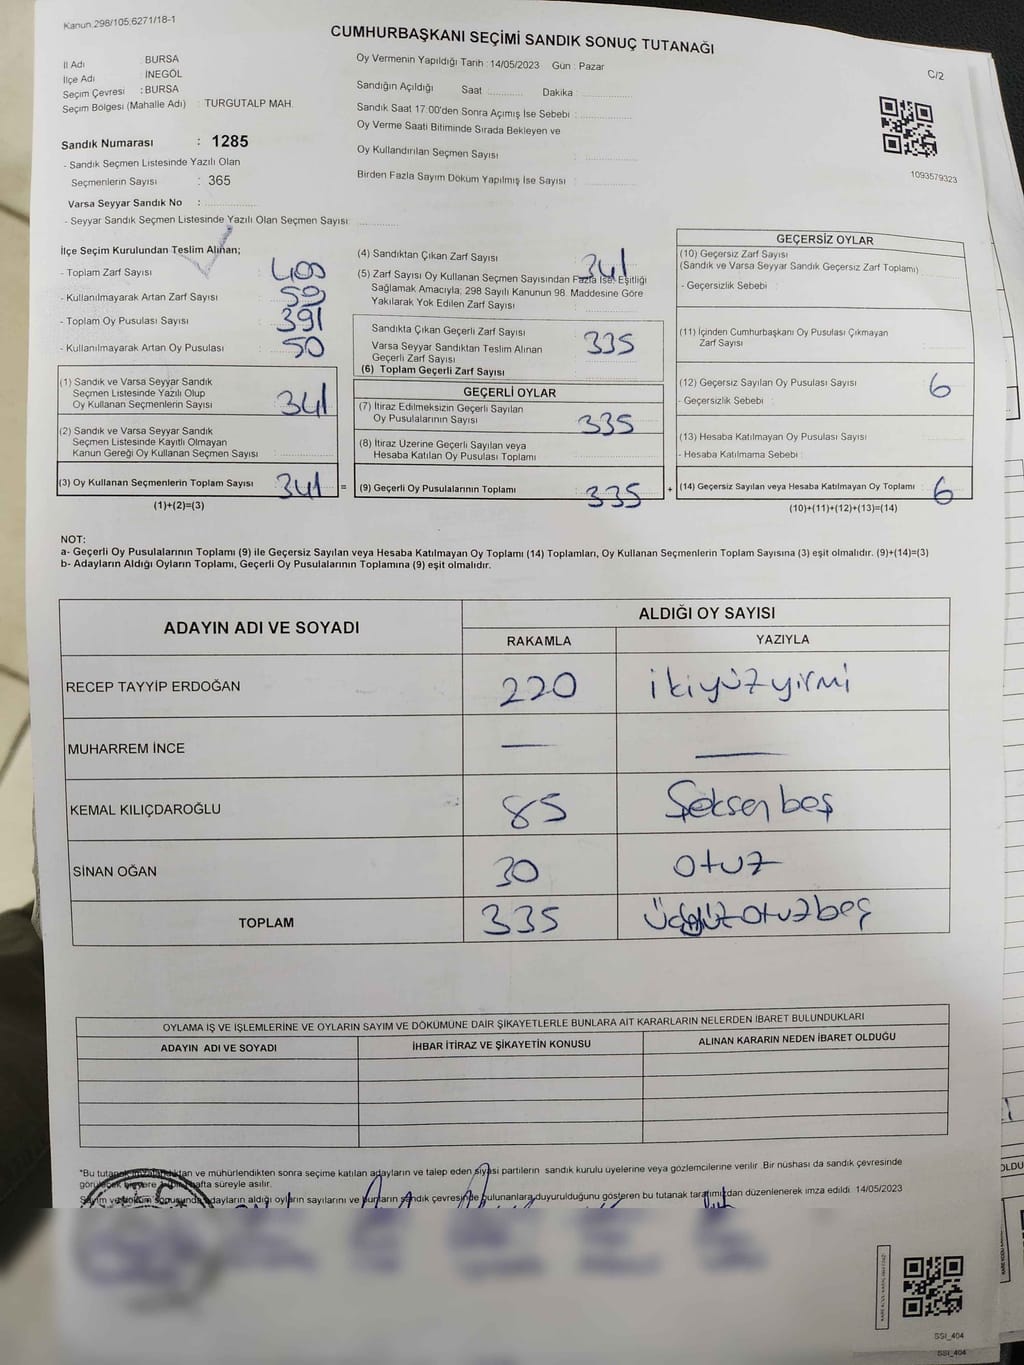 Kanun.298/105,6271/18-1
CUMHURBAŞKANI SEÇİMİ SANDIK SONUÇ TUTANAĞI
C/2
İl Adı : BURSA
İlçe Adı : İNEGÖL
Seçim Çevresi : BURSA
Seçim Bölgesi (Mahalle Adı) : TURGUTALP MAH.
Sandık Numarası : 1285
- Sandık Seçmen Listesinde Yazılı Olan
Seçmenlerin Sayısı : 365
Varsa Seyyar Sandık No :
- Seyyar Sandık Seçmen Listesinde Yazılı Olan Seçmen Sayısı:
Oy Vermenin Yapıldığı Tarih : 14/05/2023 Gün : Pazar
Sandığın Açıldığı Saat Dakika :
Sandık Saat 17:00'den Sonra Açımış İse Sebebi :
Oy Verme Saati Bitiminde Sırada Bekleyen ve
Oy Kullandırılan Seçmen Sayısı :
Birden Fazla Sayım Döküm Yapılmış İse Sayısı :
1093579323
İlçe Seçim Kurulundan Teslim Alınan;
- Toplam Zarf Sayısı : 400
- Kullanılmayarak Artan Zarf Sayısı : 59
- Toplam Oy Pusulası Sayısı : 391
- Kullanılmayarak Artan Oy Pusulası : 50
(1) Sandık ve Varsa Seyyar Sandık
Seçmen Listesinde Yazılı Olup
Oy Kullanan Seçmenlerin Sayısı : 341
(2) Sandık ve Varsa Seyyar Sandık
Seçmen Listesinde Kayıtlı Olmayan
Kanun Gereği Oy Kullanan Seçmen Sayısı :
(3) Oy Kullanan Seçmenlerin Toplam Sayısı : 341 =
(1)+(2)=(3)
(4) Sandıktan Çıkan Zarf Sayısı : 341
(5) Zarf Sayısı Oy Kullanan Seçmen Sayısından Fazla İse, Eşitliği
Sağlamak Amacıyla; 298 Sayılı Kanunun 98. Maddesine Göre
Yakılarak Yok Edilen Zarf Sayısı :
Sandıkta Çıkan Geçerli Zarf Sayısı : 335
Varsa Seyyar Sandıktan Teslim Alınan
Geçerli Zarf Sayısı
(6) Toplam Geçerli Zarf Sayısı :
GEÇERLİ OYLAR
(7) İtiraz Edilmeksizin Geçerli Sayılan
Oy Pusulalarının Sayısı : 335
(8) İtiraz Üzerine Geçerli Sayılan veya
Hesaba Katılan Oy Pusulası Toplamı :
(9) Geçerli Oy Pusulalarının Toplamı : 335 +
GEÇERSİZ OYLAR
(10) Geçersiz Zarf Sayısı
(Sandık ve Varsa Seyyar Sandık Geçersiz Zarf Toplamı)
- Geçersizlik Sebebi :
(11) İçinden Cumhurbaşkanı Oy Pusulası Çıkmayan
Zarf Sayısı :
(12) Geçersiz Sayılan Oy Pusulası Sayısı : 6
- Geçersizlik Sebebi :
(13) Hesaba Katılmayan Oy Pusulası Sayısı :
- Hesaba Katılmama Sebebi :
(14) Geçersiz Sayılan veya Hesaba Katılmayan Oy Toplamı : 6
(10)+(11)+(12)+(13)=(14)
NOT:
a- Geçerli Oy Pusulalarının Toplamı (9) ile Geçersiz Sayılan veya Hesaba Katılmayan Oy Toplamı (14) Toplamları, Oy Kullanan Seçmenlerin Toplam Sayısına (3) eşit olmalıdır. (9)+(14)=(3)
b- Adayların Aldığı Oyların Toplamı, Geçerli Oy Pusulalarının Toplamına (9) eşit olmalıdır.
ADAYIN ADI VE SOYADI
ALDIĞI OY SAYISI
RAKAMLA YAZIYLA
RECEP TAYYİP ERDOĞAN 220 ikiyüzyirmi
MUHARREM İNCE — —
KEMAL KILIÇDAROĞLU 85 Seksen beş
SİNAN OĞAN 30 otuz
TOPLAM 335 Üçyüzotuzbeş
OYLAMA İŞ VE İŞLEMLERİNE VE OYLARIN SAYIM VE DÖKÜMÜNE DAİR ŞİKAYETLERLE BUNLARA AİT KARARLARIN NELERDEN İBARET BULUNDUKLARI
ADAYIN ADI VE SOYADI İHBAR İTİRAZ VE ŞİKAYETİN KONUSU ALINAN KARARIN NEDEN İBARET OLDUĞU
*Bu tutanak imzalandıktan ve mühürlendikten sonra seçime katılan adayların ve talep eden siyasi partilerin sandık kurulu üyelerine veya gözlemcilerine verilir .Bir nüshası da sandık çevresinde
görülecek bir yere 1 bir hafta süreyle asılır.
Sayım ve döküm sonucunda adayların aldığı oyların sayılarını ve bunların sandık çevresinde bulunanlara duyurulduğunu gösteren bu tutanak tarafımızdan düzenlenerek imza edildi. 14/05/2023
SSİ_404
SSİ_404